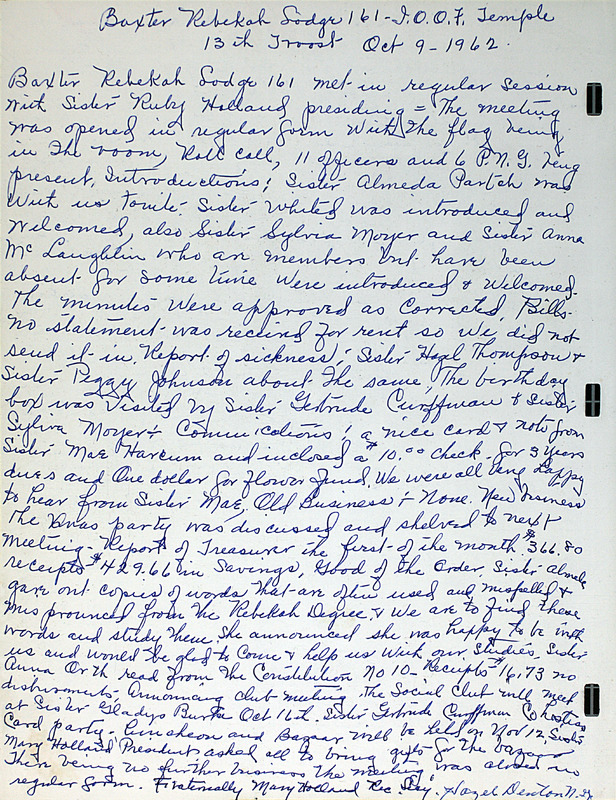 Baxter Rebekah Lodge 161 - I.O.O.F. Temple
13th Troost Oct 9 - 1962.
Baxter Rebekah Lodge 161 met in regular session
with Sister Ruby Holland presiding = The meeting
was opened in regular form with the flag being
in the room, Roll call, 11 officers and 6 P.N.G. being
present. Introductions: Sister Almeda Partch was
with us tonite. Sister Whited was introduced and
welcomed, also Sister Sylvia Moyer and Sister Anna
McLaughlin who are members but have been
absent for some time were introduced & welcomed.
The minutes were approved as corrected. Bills-
no statement was received for rent so we did not
send it in. Report of sickness: Sister Hazel Thompson &
Sister Peggy Johnson about the same. The birthday
box was visited by Sister Gertrude Curffman & Sister
Sylvia Moyer. Communications: a nice card & note from
Sister Mae Harcum and inclosed a $10.00 check for 3 years
dues and One dollar for flower fund. We were all very happy
to hear from Sister Mae. Old Business - None. New business
The Xmas party was discussed and shelved to next
meeting - Report of Treasurer the first of the month $366.80
receipts $429.66 in Savings, Good of the Order, Sister Almeda
gave out copies of words that are often used and mispelled &
mispronuced from the Rebekah Degree, & we are to find these
words and study them. She announced she was happy to be with
us and would be glad to come & help us with our studies. Sister
Anna Orth read from the Constitution No 10 - Receipts $16.73 no
disbursments - Announcing club meeting. The Social Club will meet
at Sister Gladys Burke Oct 16th. Sister Gertrude Curffman Co hostess
Card party - Luncheon and Bazaar will be held on Nov 12, Sister
Mary Holland President asked all to bring gifts for the bazaar
There being no further business the meeting was closed in
regular form. Fraternally Mary Holland Rec Secy. Hazel Denton N.G.